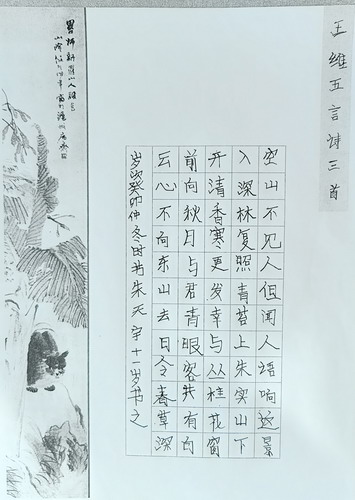 王维五言诗三首
空山不见人但闻人语响返景
入深林复照青苔上朱实山下
开清香寒更发幸与丛桂花窗
前向秋月与君青眼客共有白
云心不向东山去日令春草深
岁次癸卯仲冬时节朱天宇十一岁书之